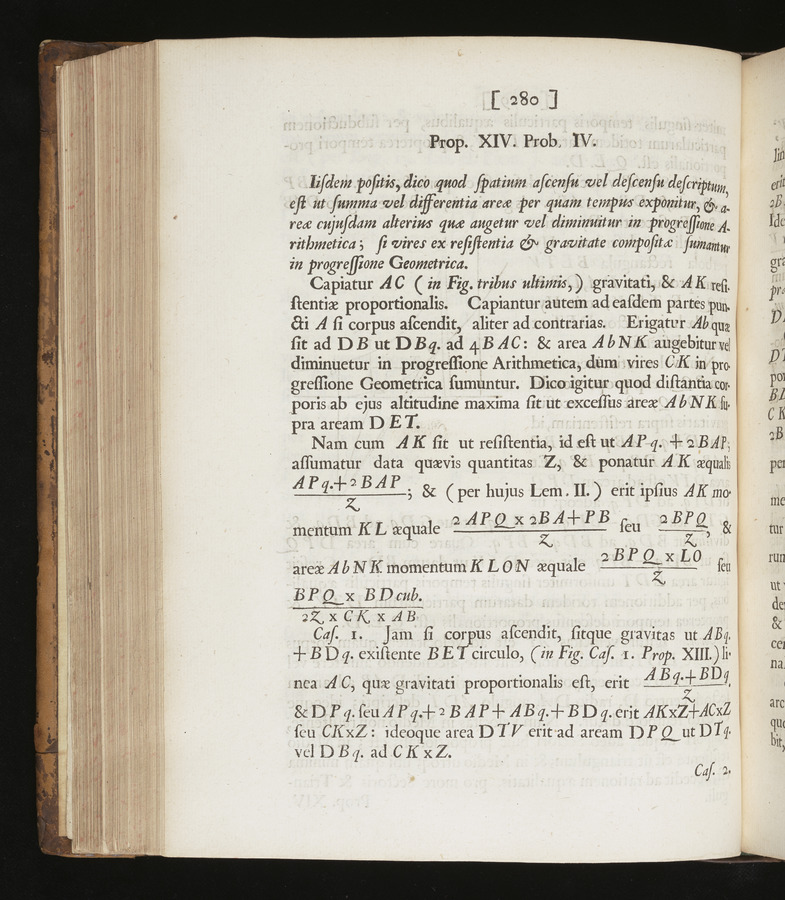 [ 280 ]
Prop. XIV. Prob. IV.
Iiſdem poſitis, dico quod ſpatium aſcenſu vel deſcenſu deſcriptum,
eſt ut ſumma vel differentia areæ per quam tempus exponitur, & a-
reæ cujuſdam alterius quæ augetur vel diminuitur in progreſſione A-
rithmetica; ſi vires ex reſiſtentia & gravitate compoſitæ ſumantur
in progreſſione Geometrica.
Capiatur AC ( in Fig. tribus ultimis, ) gravitati, & AK reſi-
ſtentiæ proportionalis. Capiantur autem ad eaſdem partes pun-
cti A ſi corpus aſcendit, aliter ad contrarias. Erigatur Ab quæ
ſit ad DB ut DBq. ad 4BAC: & area AbNK augebitur vel
diminuetur in progreſſione Arithmetica, dum vires CK in pro-
greſſione Geometrica ſumuntur. Dico igitur quod diſtantia cor-
poris ab ejus altitudine maxima ſit ut exceſſus areæ AbNK ſu-
pra aream DET.
Nam cum AK ſit ut reſiſtentia, id eſt ut APq. + 2BAP;
aſſumatur data quævis quantitas Z, & ponatur AK æqualis
APq.+2BAP / Z ; & ( per hujus Lem. II. ) erit ipſius AK mo-
mentum KL æquale 2APQ x 2BA+PB / Z ſeu 2BPQ / Z, &
areæ AbNK momentum KLON æquale 2BPQ x LO / Z ſeu
BPQ x BD cub. / 2Z x CK x AB
Caſ. 1. Jam ſi corpus aſcendit, ſitque gravitas ut ABq.
+BDq. exiſtente BET circulo, (in Fig. Caſ. 1. Prop. XIII.) li-
nea AC, quæ gravitati proportionalis eſt, erit ABq.+BDq. / Z
& DPq. ſeu APq.+2BAP+ABq.+BDq. erit AKxZ+ACxZ
ſeu CKxZ: ideoque area DTV erit ad aream DPQ ut DTq.
vel DBq. ad CKxZ.
Caſ. 2.